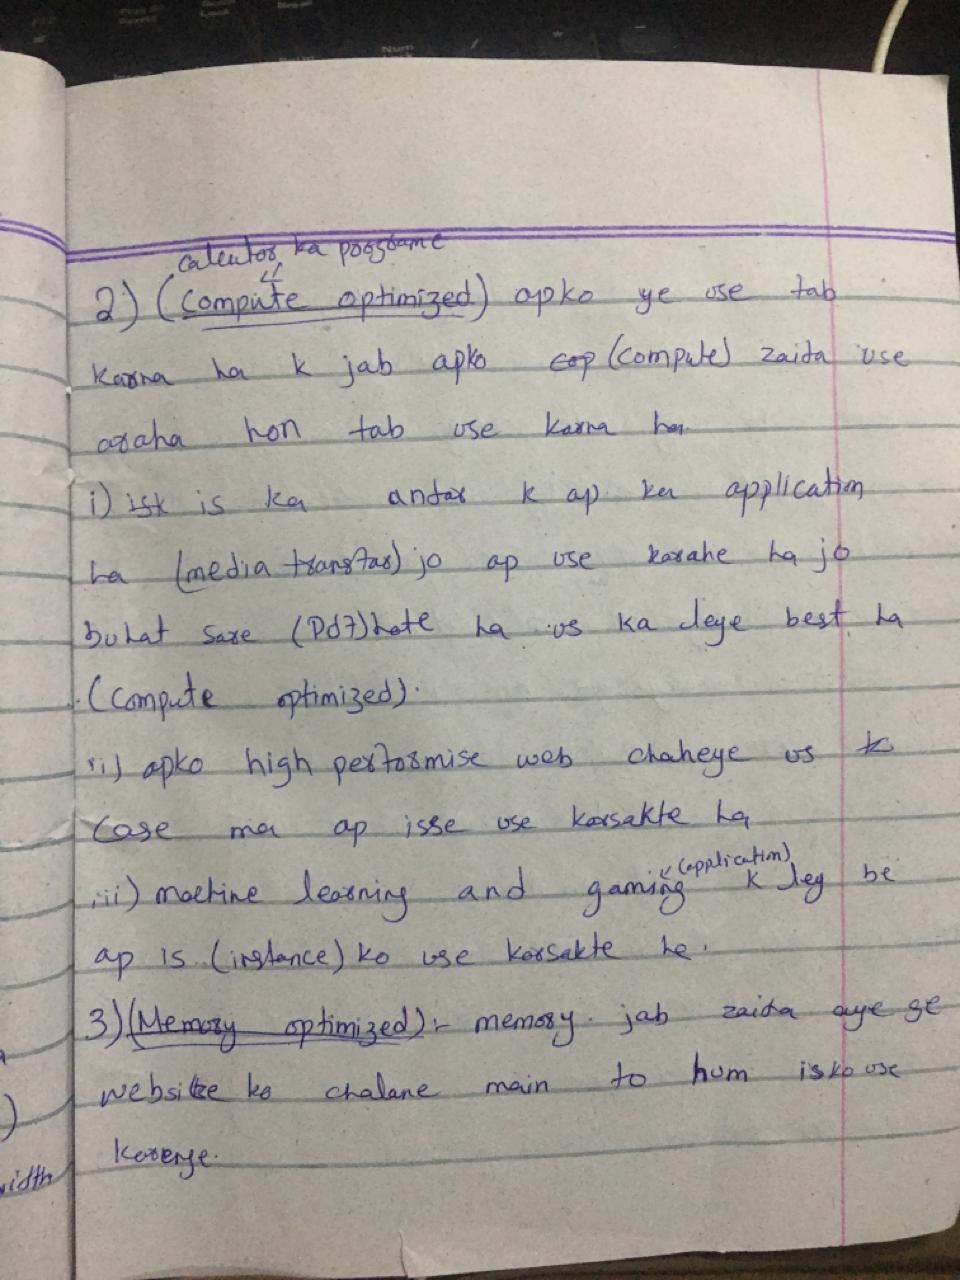 calcutor ka programe
2) (Compute optimized) apko ye use tab
karna ha k jab apko (compute) zaida use
araha hon tab use karna ha
i) isk is ka andar k ap ka application
ha (media transfar) jo ap use karahe ha jo
buhat sare (Pdf) hote ha us ka leye best ha
(Compute optimized).
ii) apko high performise web chaheye us k
case ma ap isse use karsakte ha
(application)
iii) machine learning and gaming k ley be
ap is (instance) ko use karsakte he.
3) (Memory optimized):- memory jab zaida aye ge
website ko chalane main to hum isko use
karenge.
)
width